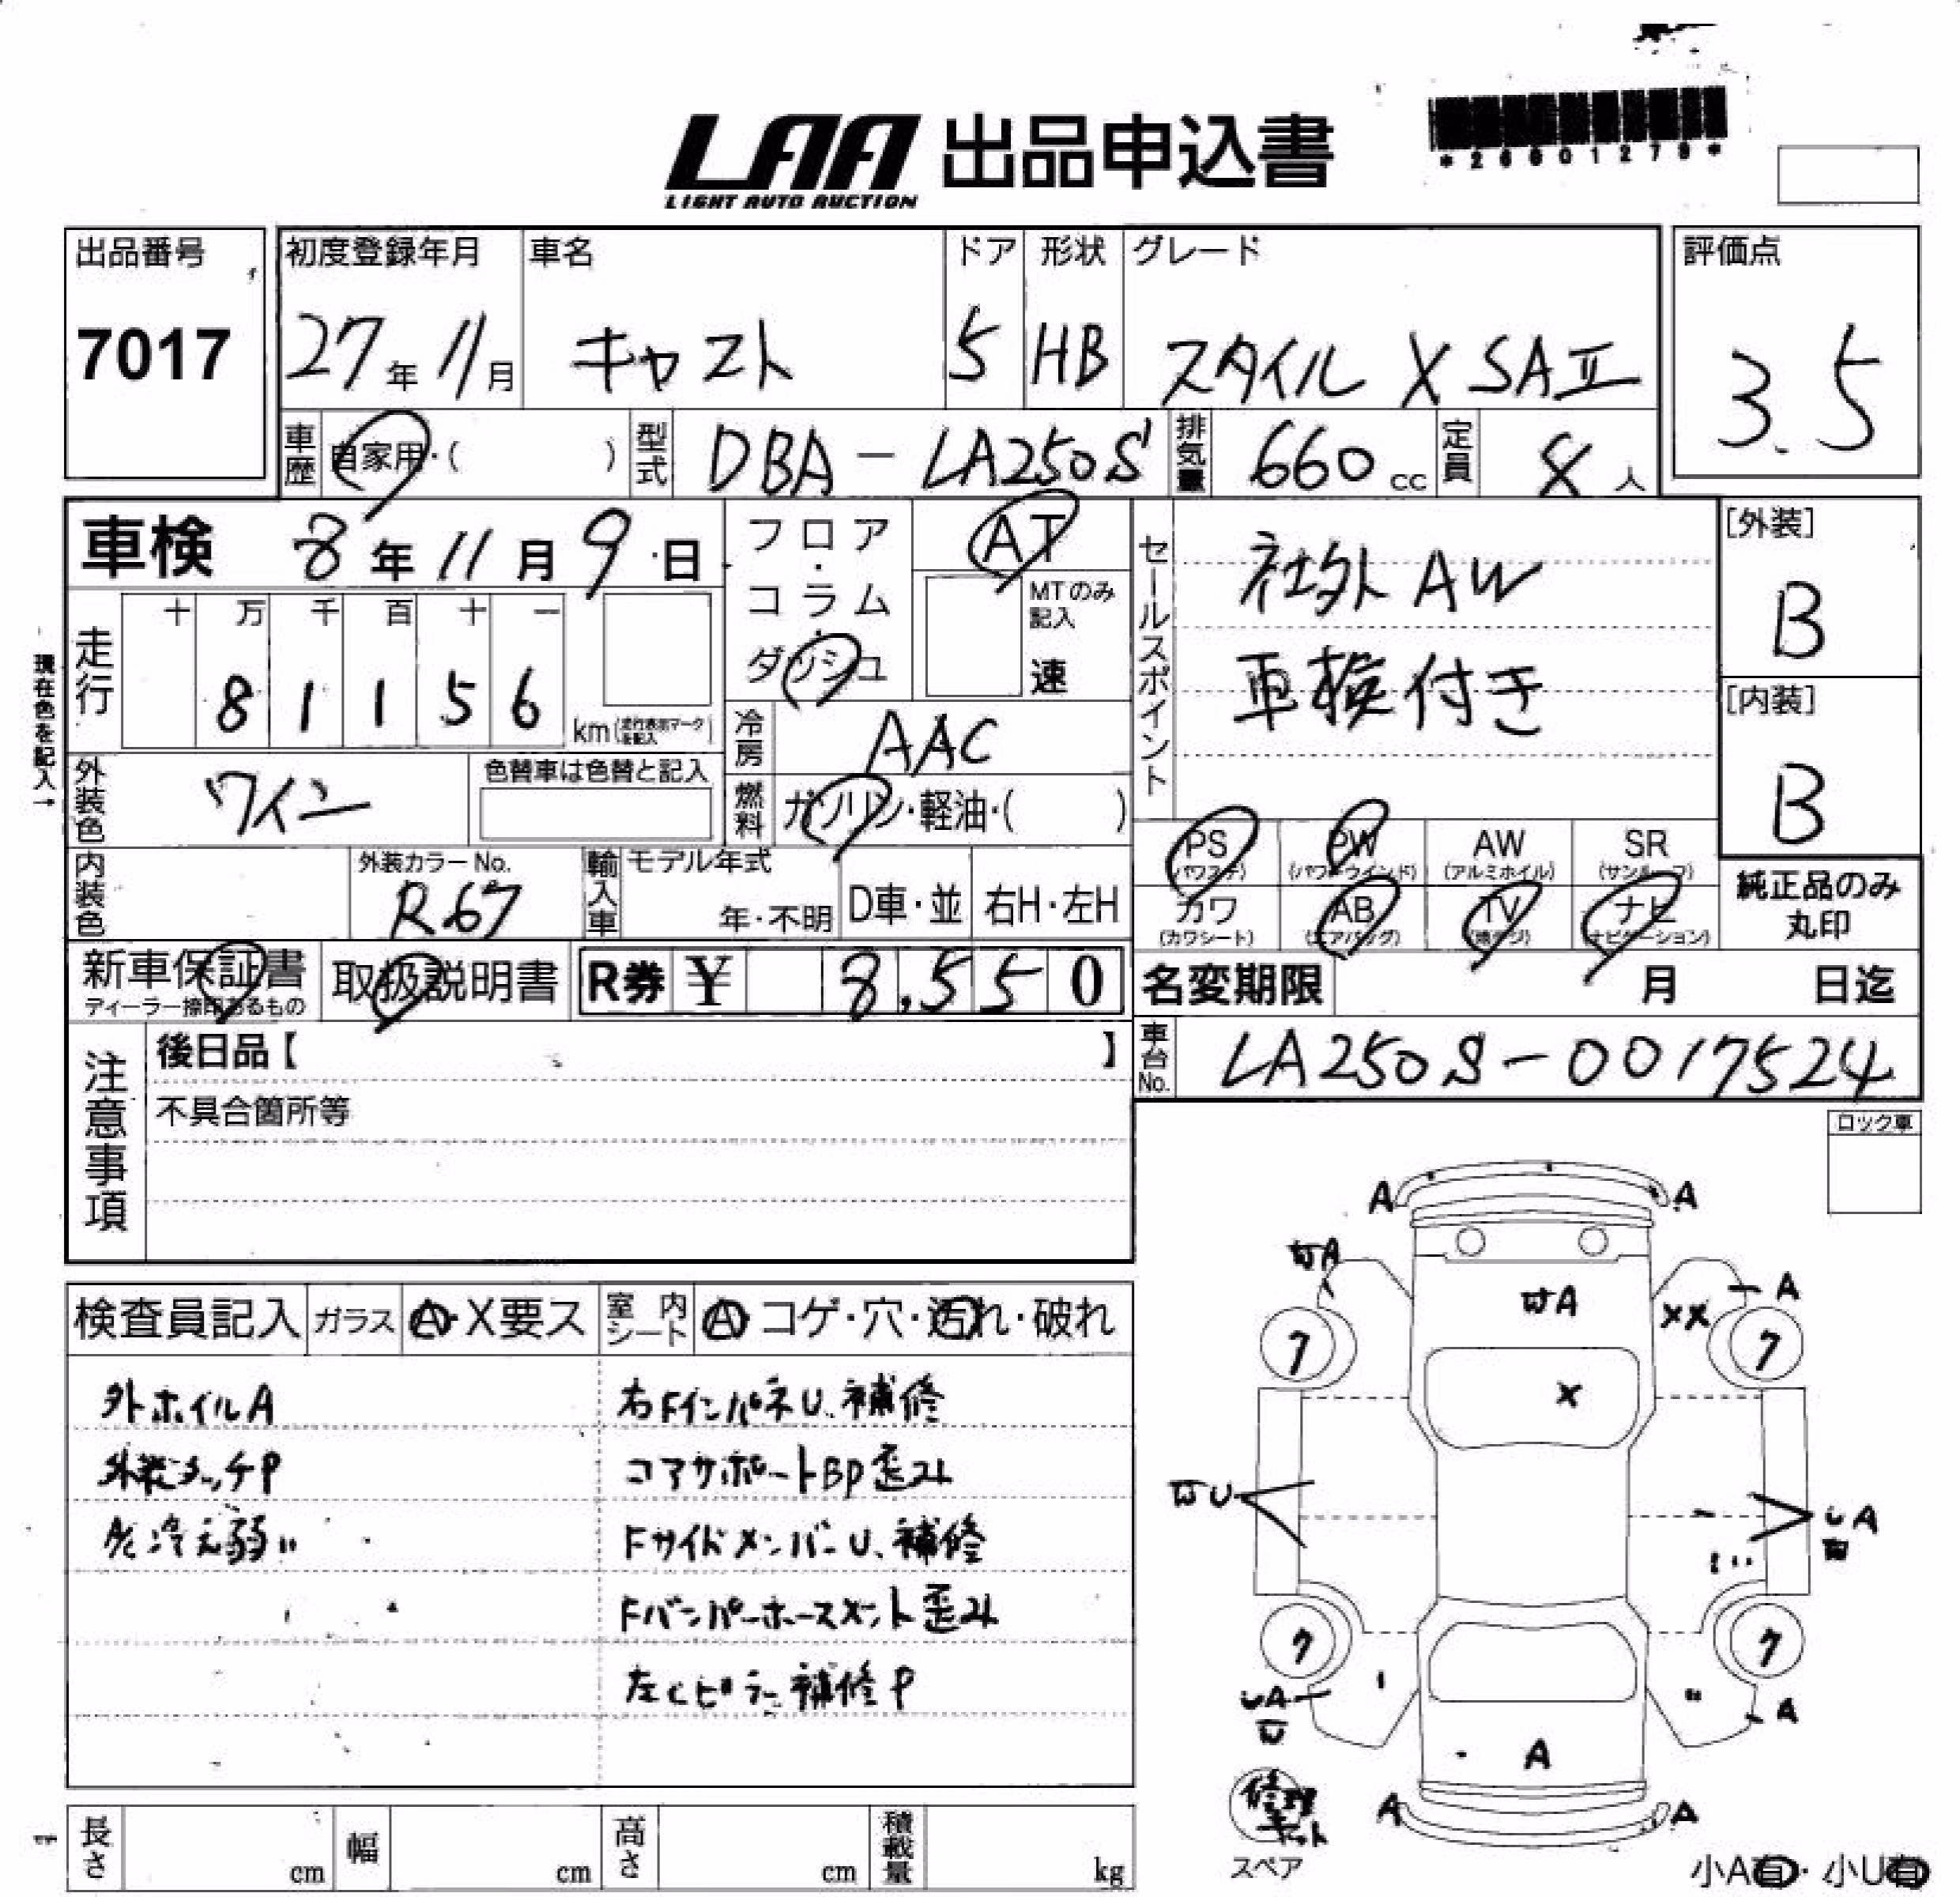 LAA 出品申込書
LIGHT AUTO AUCTION
出品番号
7017
初度登録年月
27年 11月
車名
キャスト
ドア
5
形状
HB
グレード
スタイル X SAⅡ
評価点
3.5
車歴
自家用・( )
型式
DBA-LA250S
排気量
660 cc
定員
人
車検 8年 11月 9日
走行
十 万 千 百 十 一
8 1 1 5 6
km (走行表示マークを記入)
現在色を記入→
フロア・コラム・ダッシュ
AT
MTのみ記入
速
冷房
AAC
燃料
ガソリン・軽油・( )
外装色
ワイン
色替車は色替と記入
内装色
外装カラーNo.
R67
輸入車
モデル年式
年・不明
D車・並
右H・左H
セールスポイント
社外AW
車検付き
[外装]
B
[内装]
B
PS (パワステ)
PW (パワーウインド)
AW (アルミホイル)
SR (サンルーフ)
カワ (カワシート)
AB (エアバッグ)
TV (地デジ)
ナビ (ナビゲーション)
純正品のみ丸印
新車保証書
ディーラー捺印あるもの
取扱説明書
R券 ¥ 8,550
名変期限 月 日迄
車台No.
LA250S-0017524
注意事項
後日品【 】
不具合箇所等
ロック車
検査員記入
ガラス
A・X要ス
室内シート
A・コゲ・穴・汚れ・破れ
外ホイルA
外装タッチP
A/C冷え弱い
右Fインパネ U、補修
コアサポートBP歪み
FサイドメンバーU、補修
Fバンパーホースメント歪み
左Cピラー補修P
A A
WA A
WA
XX
7 7
X
WU
UA
7 7
UA
A
A
A A
修理キット
スペア
小A有・小U有
長さ cm
幅 cm
高さ cm
積載量 kg